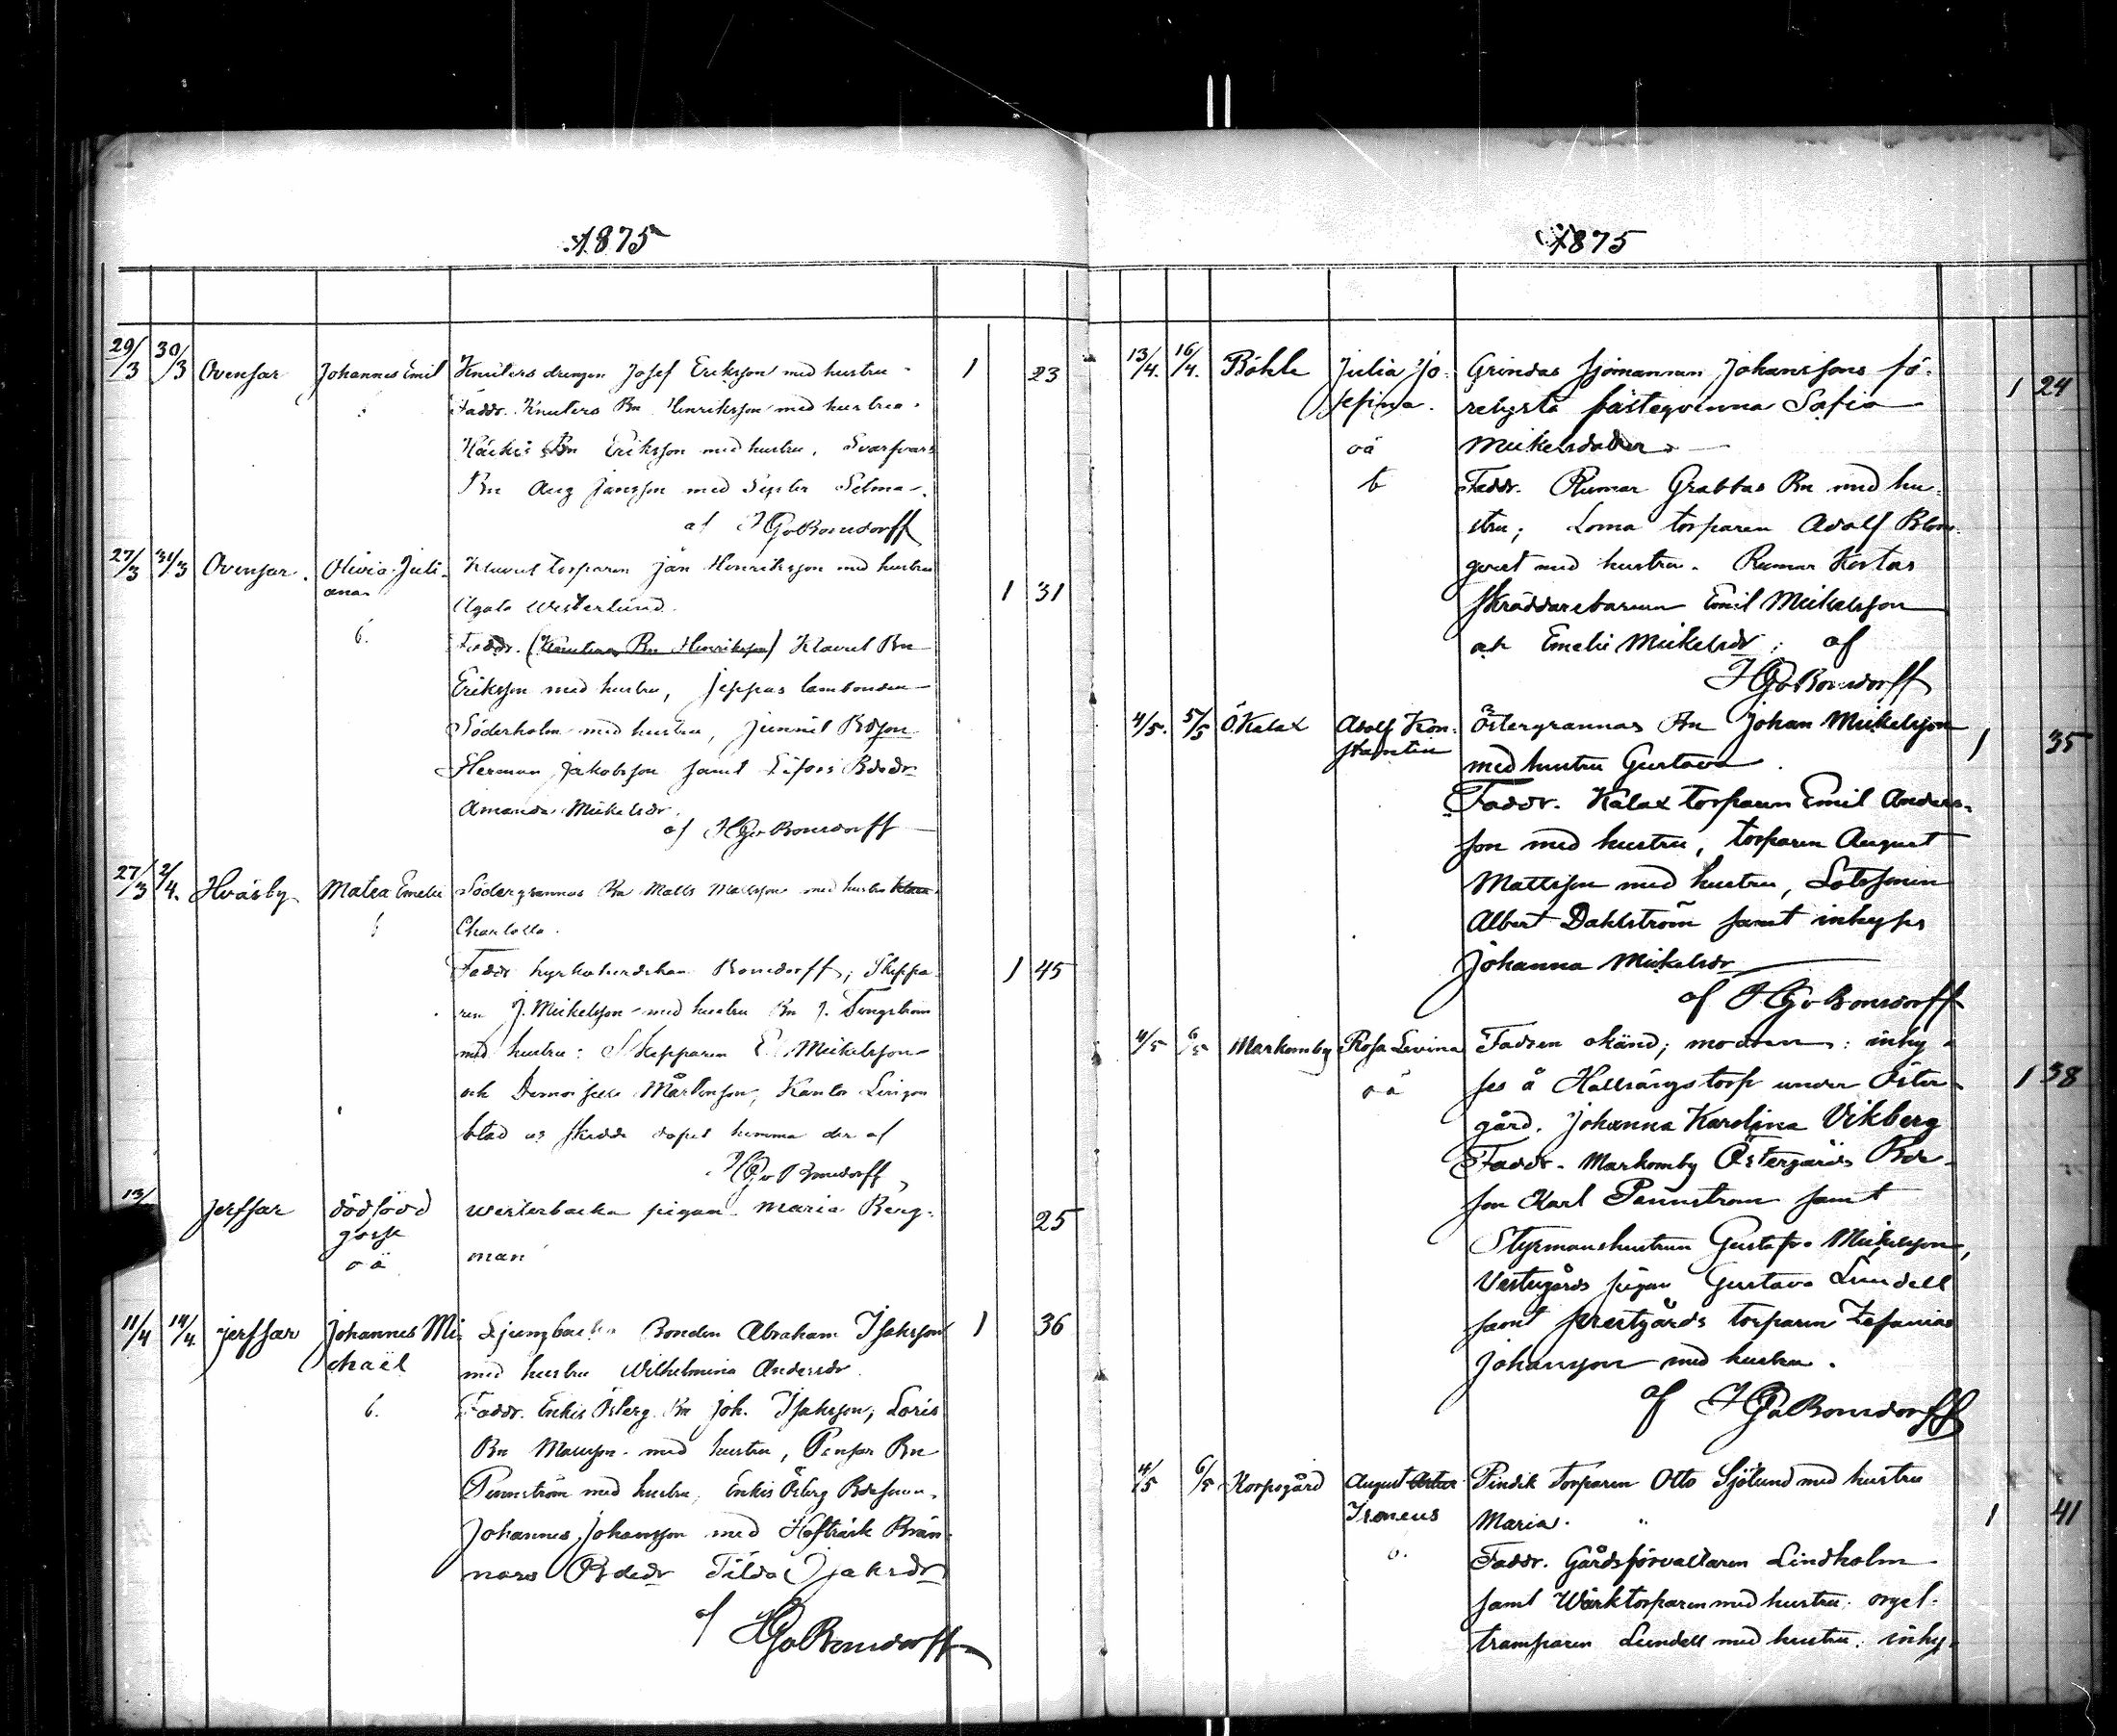 1875
29/3 30/3 Ovensar Johannes Emil Knuters drengen Josef Eriksson med hustru 1 23
Faddr. Knuters Bn Henriksson med hustru.
Bn Eriksson med hustru,
Bn Aug Jansson med Syster Selma.
af HGvBonsdorff
27/3 31/3 Ovensar. Olivia Juli- Klavus torparen Jan Henriksson med hustru 1 31
ana Agata Westerlund.
b. Faddr. (Knuters Bn Henriksson) Klavus Bn
Eriksson med hustru, Jeppas lambonden
Söderholm med hustru, Junnil Bdson
Herman Jakobsson samt Bdedr
Amanda Mickelsdr.
af HGvBonsdorff
27/3 2/4. Hväsby Matea Emelie Södergrannas Bn Matts Mattsson med hustru
Charlotta.
Faddr kyrkoherdskan Bonsdorff, Skeppa- 1 45
ren J. Mickelsson med hustru Bn J. Tengström
med hustru: Skepparen E. Mickelsson
och Mårtenson, Kantor Lingon
blad döpet hemma der af
HGvBonsdorff
13/ Jerssar dödfödd westerbacka pigan Maria Berg- 25
gosse man
oä
11/4 14/4. Jerssar Johannes Mi- Ljungbacka Bonden Abraham Isaksson 1 36
chaël med hustru Wilhelmina Andersdr.
b. Faddr. Enkis Österg. Bn Joh. Isaksson, Loris
Bn Mattsson med hustru, Pensar Bn
Pennström med hustru, Enkis Österg Bdesonen
Johannes Johansson med Hofträsk Brän-
nars Bdedr Tilda Isaksdr
af HGvBonsdorff
1875
13/4. 16/4. Böhle Julia Jo- Grindas sjömannen Johanssons fö- 1 24
sefina. religsta fästeqvinna Sofia
oä Mickelsdotter
b Faddr. Rumar Grabbas Bn med hu-
stru; Loma torparen Adolf Blom-
qvist med hustru. Rumar Kortas
skräddarebarnen Emil Mickelsson
och Emelie Mickelsdr; af
HGvBonsdorff
4/5. 5/5 Ö.Kalax Adolf Kon- Östergrannas Bn Johan Mickelsson 1 35
stantin med hustru Gustava.
Faddr. Kalax torparen Emil Anders-
son med hustru, torparen August
Mattsson med hustru, Lotssonen
Albert Dahlström samt inhyses
Johanna Mickelsdr
af HGvBonsdorff
4/5 6/5 Markomby Rosa Levina Fadren okänd; modren: inhy- 1 38
oä ses å Hallsängs torp under Öster-
gård. Johanna Karolina Vikberg
Faddr. Markomby Östergårds Bde-
son Karl Pennström samt
Styrmanshustrun Gustafva Mickelsson,
Vestergårds pigan Gustava Lundell
samt prestgårds torparen Zefanias
Johansson med hustru.
af HGvBonsdorff
4/5 6/5 Korpogård August Artur Pindik Torparen Otto Sjölund med hustru 1 41
Ireneus Maria.
b. Faddr. Gårdsförvaltaren Lindholm
samt Wärktorparen med hustru. orgel-
tramparen Lundell med hustru. inhy-